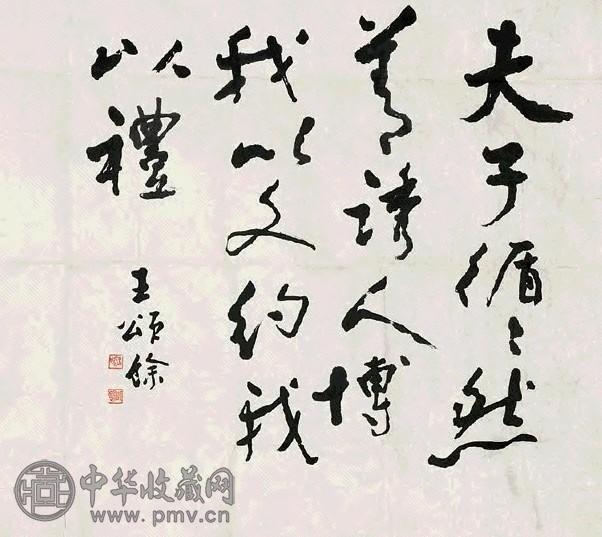 夫子循〻然
善誘人博
我以文約我
以禮
王頌餘
中华收藏网
www.pmv.cn